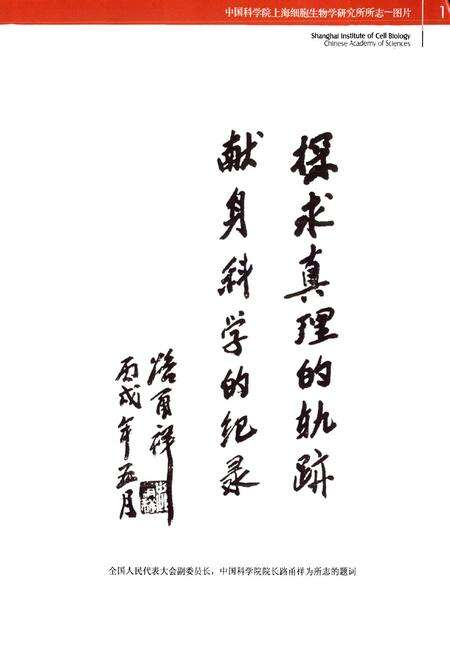 中国科学院上海细胞生物学研究所所志－图片 1
Shanghai Institute of Cell Biology
Chinese Academy of Sciences
探求真理的轨跡
献身科学的纪录
路甬祥
丙戌年五月
全国人民代表大会副委员长，中国科学院院长路甬祥为所志的题词